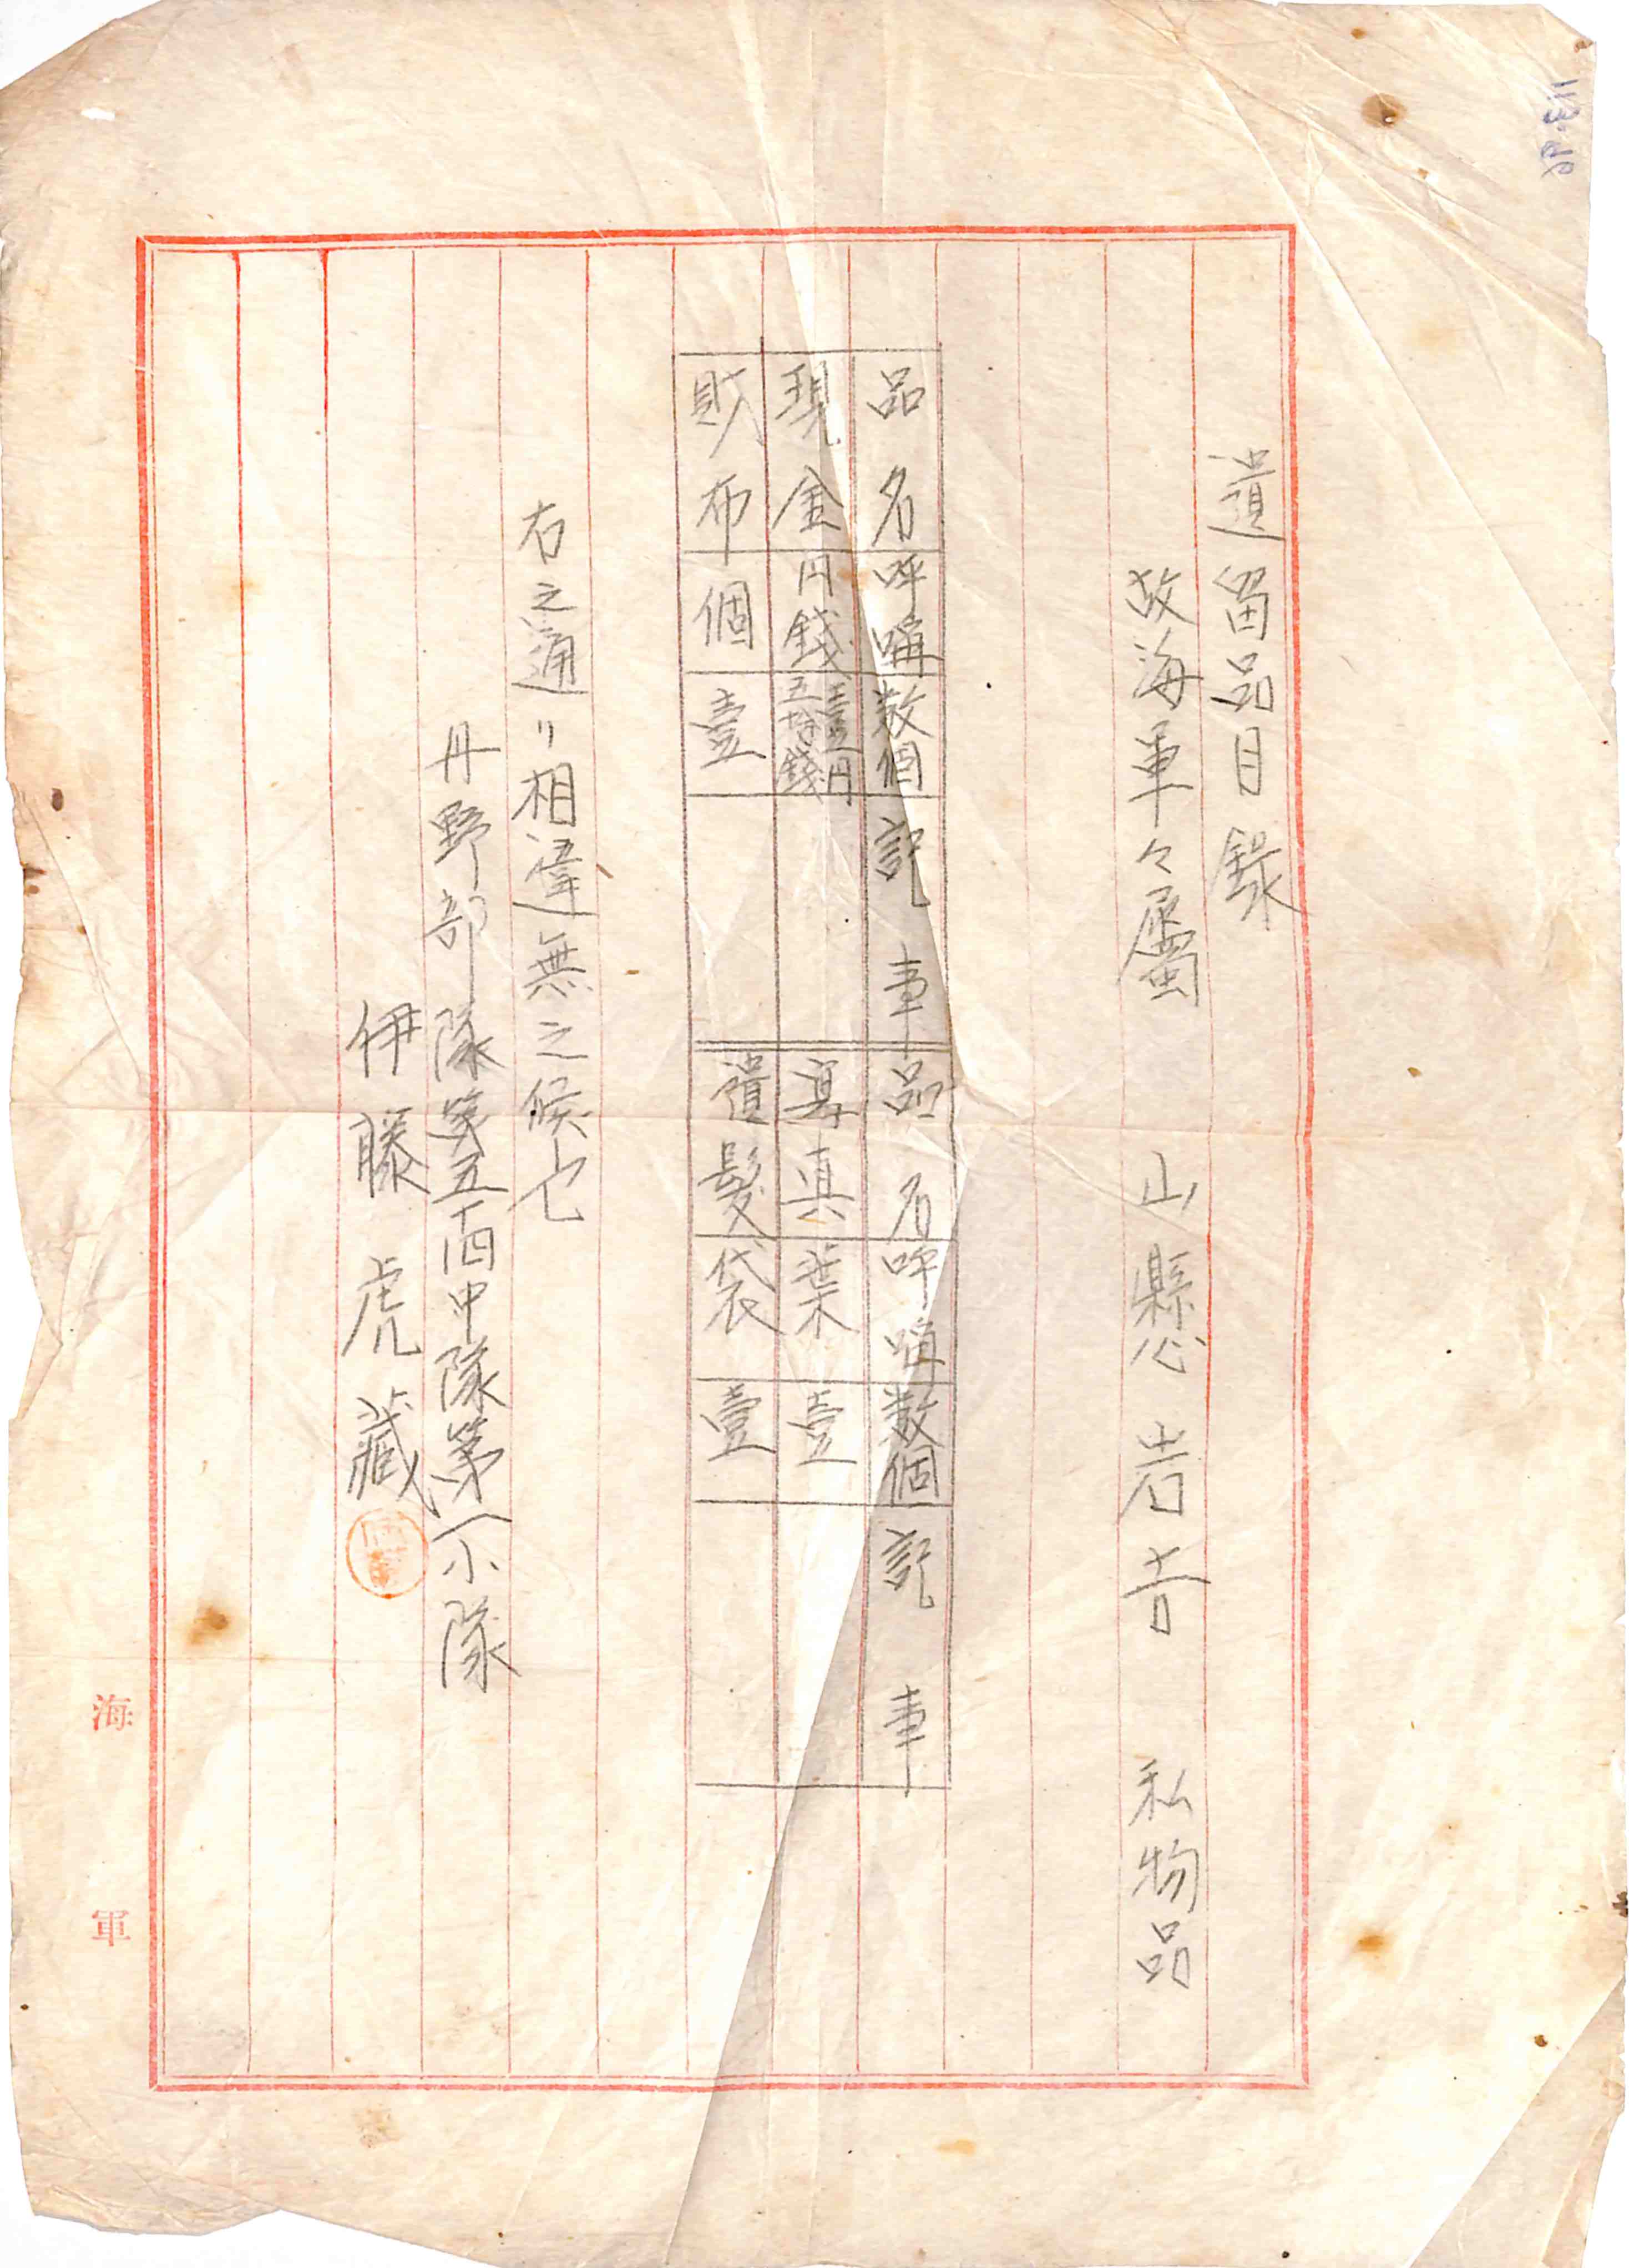 遺留品目錄
故海軍々屬 山懸岩吉 私物品
品名 呼唱 数個 記事 品名 呼唱 数個 記事
現金 円錢 壹円五拾錢 寫真 葉 壹
財布 個 壹 遺髮 袋 壹
右之通リ相違無之候也
丹野部隊第五中隊第一小隊
伊藤虎藏
海軍